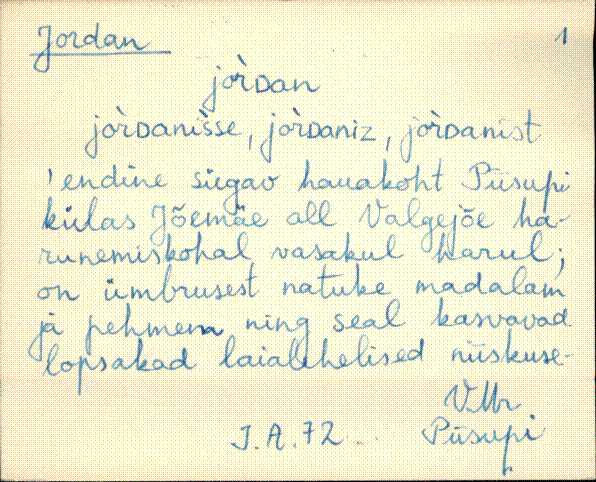 Jordan 1
jòrDan
jòrDanìsse, jòrDaniz, jòrDanist
'endine sügav hauakoht Piisupi
külas Jõemäe all Valgejõe ha-
runemiskohal vasakul harul;
on ümbrusest natuke madalam
ja pehmem ning seal kasvavad
lopsakad laialehelised niiskuse-
V.Mr
J.A.72 Piisupi